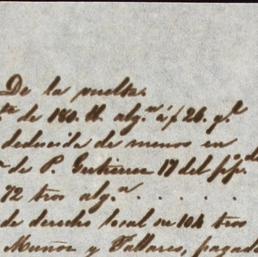 De la vuelta.
de 180. ll. alg.ⁿ á f 26. q.l
deducida de menos en
de P. Gutierrez 17 del pp.do
72 tros alg.ⁿ . . . . .
de derecho local en 104 tros
Muñoz y Vallares, pagad